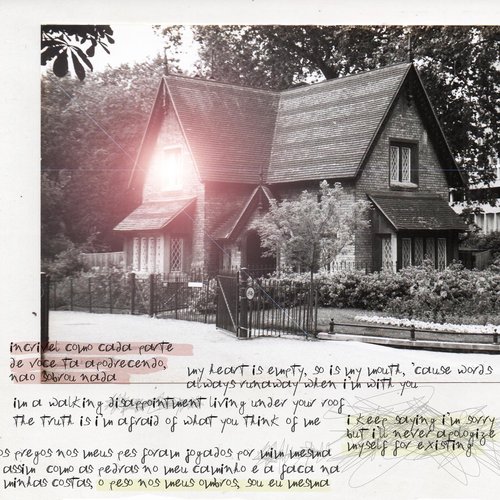 incrivel como cada parte
de voce ta apodrecendo,
nao sobrou nada
my heart is empty, so is my mouth, 'cause words
always runaway when i'm with you
im a walking disappointment living under your roof
the truth is i'm afraid of what you think of me
i keep saying i'm sorry
but i'll never apologize
myself for existing
os pregos nos meus pes foram jogados por mim mesma
assim como as pedras no meu caminho e a faca na
minhas costas, o peso nos meus ombros, sou eu mesma